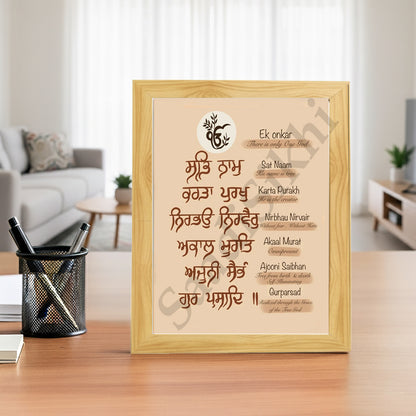 ੴ
Ek onkar
There is only One God
ਸਤਿ ਨਾਮੁ
Sat Naam
His name is true
ਕਰਤਾ ਪੁਰਖੁ
Karta Purakh
He is the creator
ਨਿਰਭਉ ਨਿਰਵੈਰੁ
Nirbhau Nirvair
Without fear , Without Hate
ਅਕਾਲ ਮੂਰਤਿ
Akaal Murat
Omnipresent
ਅਜੂਨੀ ਸੈਭੰ
Ajooni Saibhan
Free from birth & death
Self Illuminating
ਗੁਰ ਪ੍ਰਸਾਦਿ ॥
Gurparsad
Realised through the Grace
of the True God